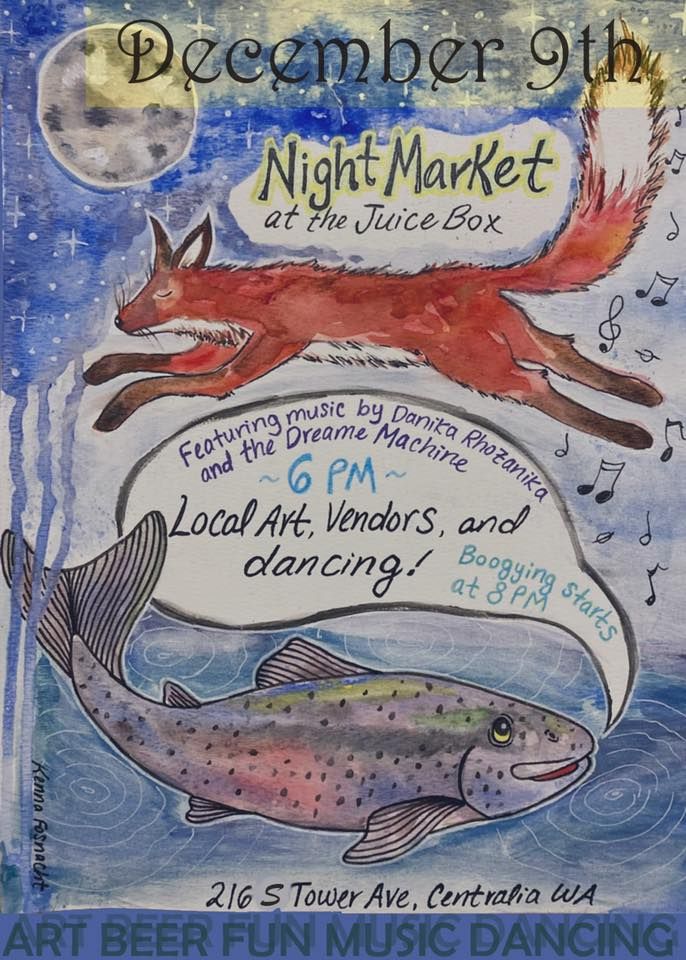 December 9th
Night Market
at the Juice Box
Featuring music by Danika Rhozanika
and the Dreame Machine
~6 PM~
Local Art, Vendors, and
dancing!
Boogying starts
at 8 PM
Kenna Fosnacht
216 S Tower Ave, Centralia WA
ART BEER FUN MUSIC DANCING